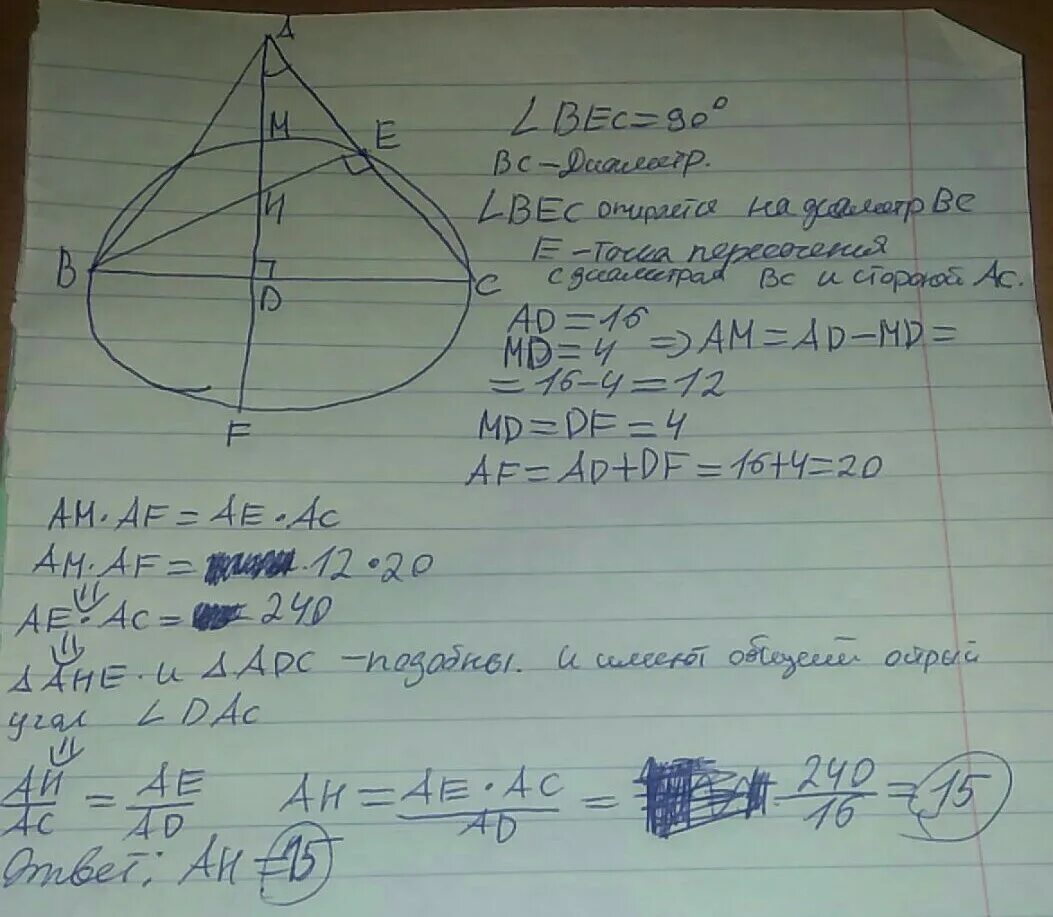 A
M
E
H
B
D
C
F
∠BEC=90°
BC-Диаметр.
∠BEC опирается на диаметр BC
E-Точка пересечения
с диаметром BC и стороной AC.
AD=16
MD=4 => AM=AD-MD=
=16-4=12
MD=DF=4
AF=AD+DF=16+4=20
AM·AF=AE·AC
AM·AF= 12·20
AE·AC= 240
△AHE и △ADC -подобны. и имеют общий острый
угол ∠DAC
AH/AC = AE/AD AH = AE·AC/AD = 240/16 = 15
Ответ: AH=15